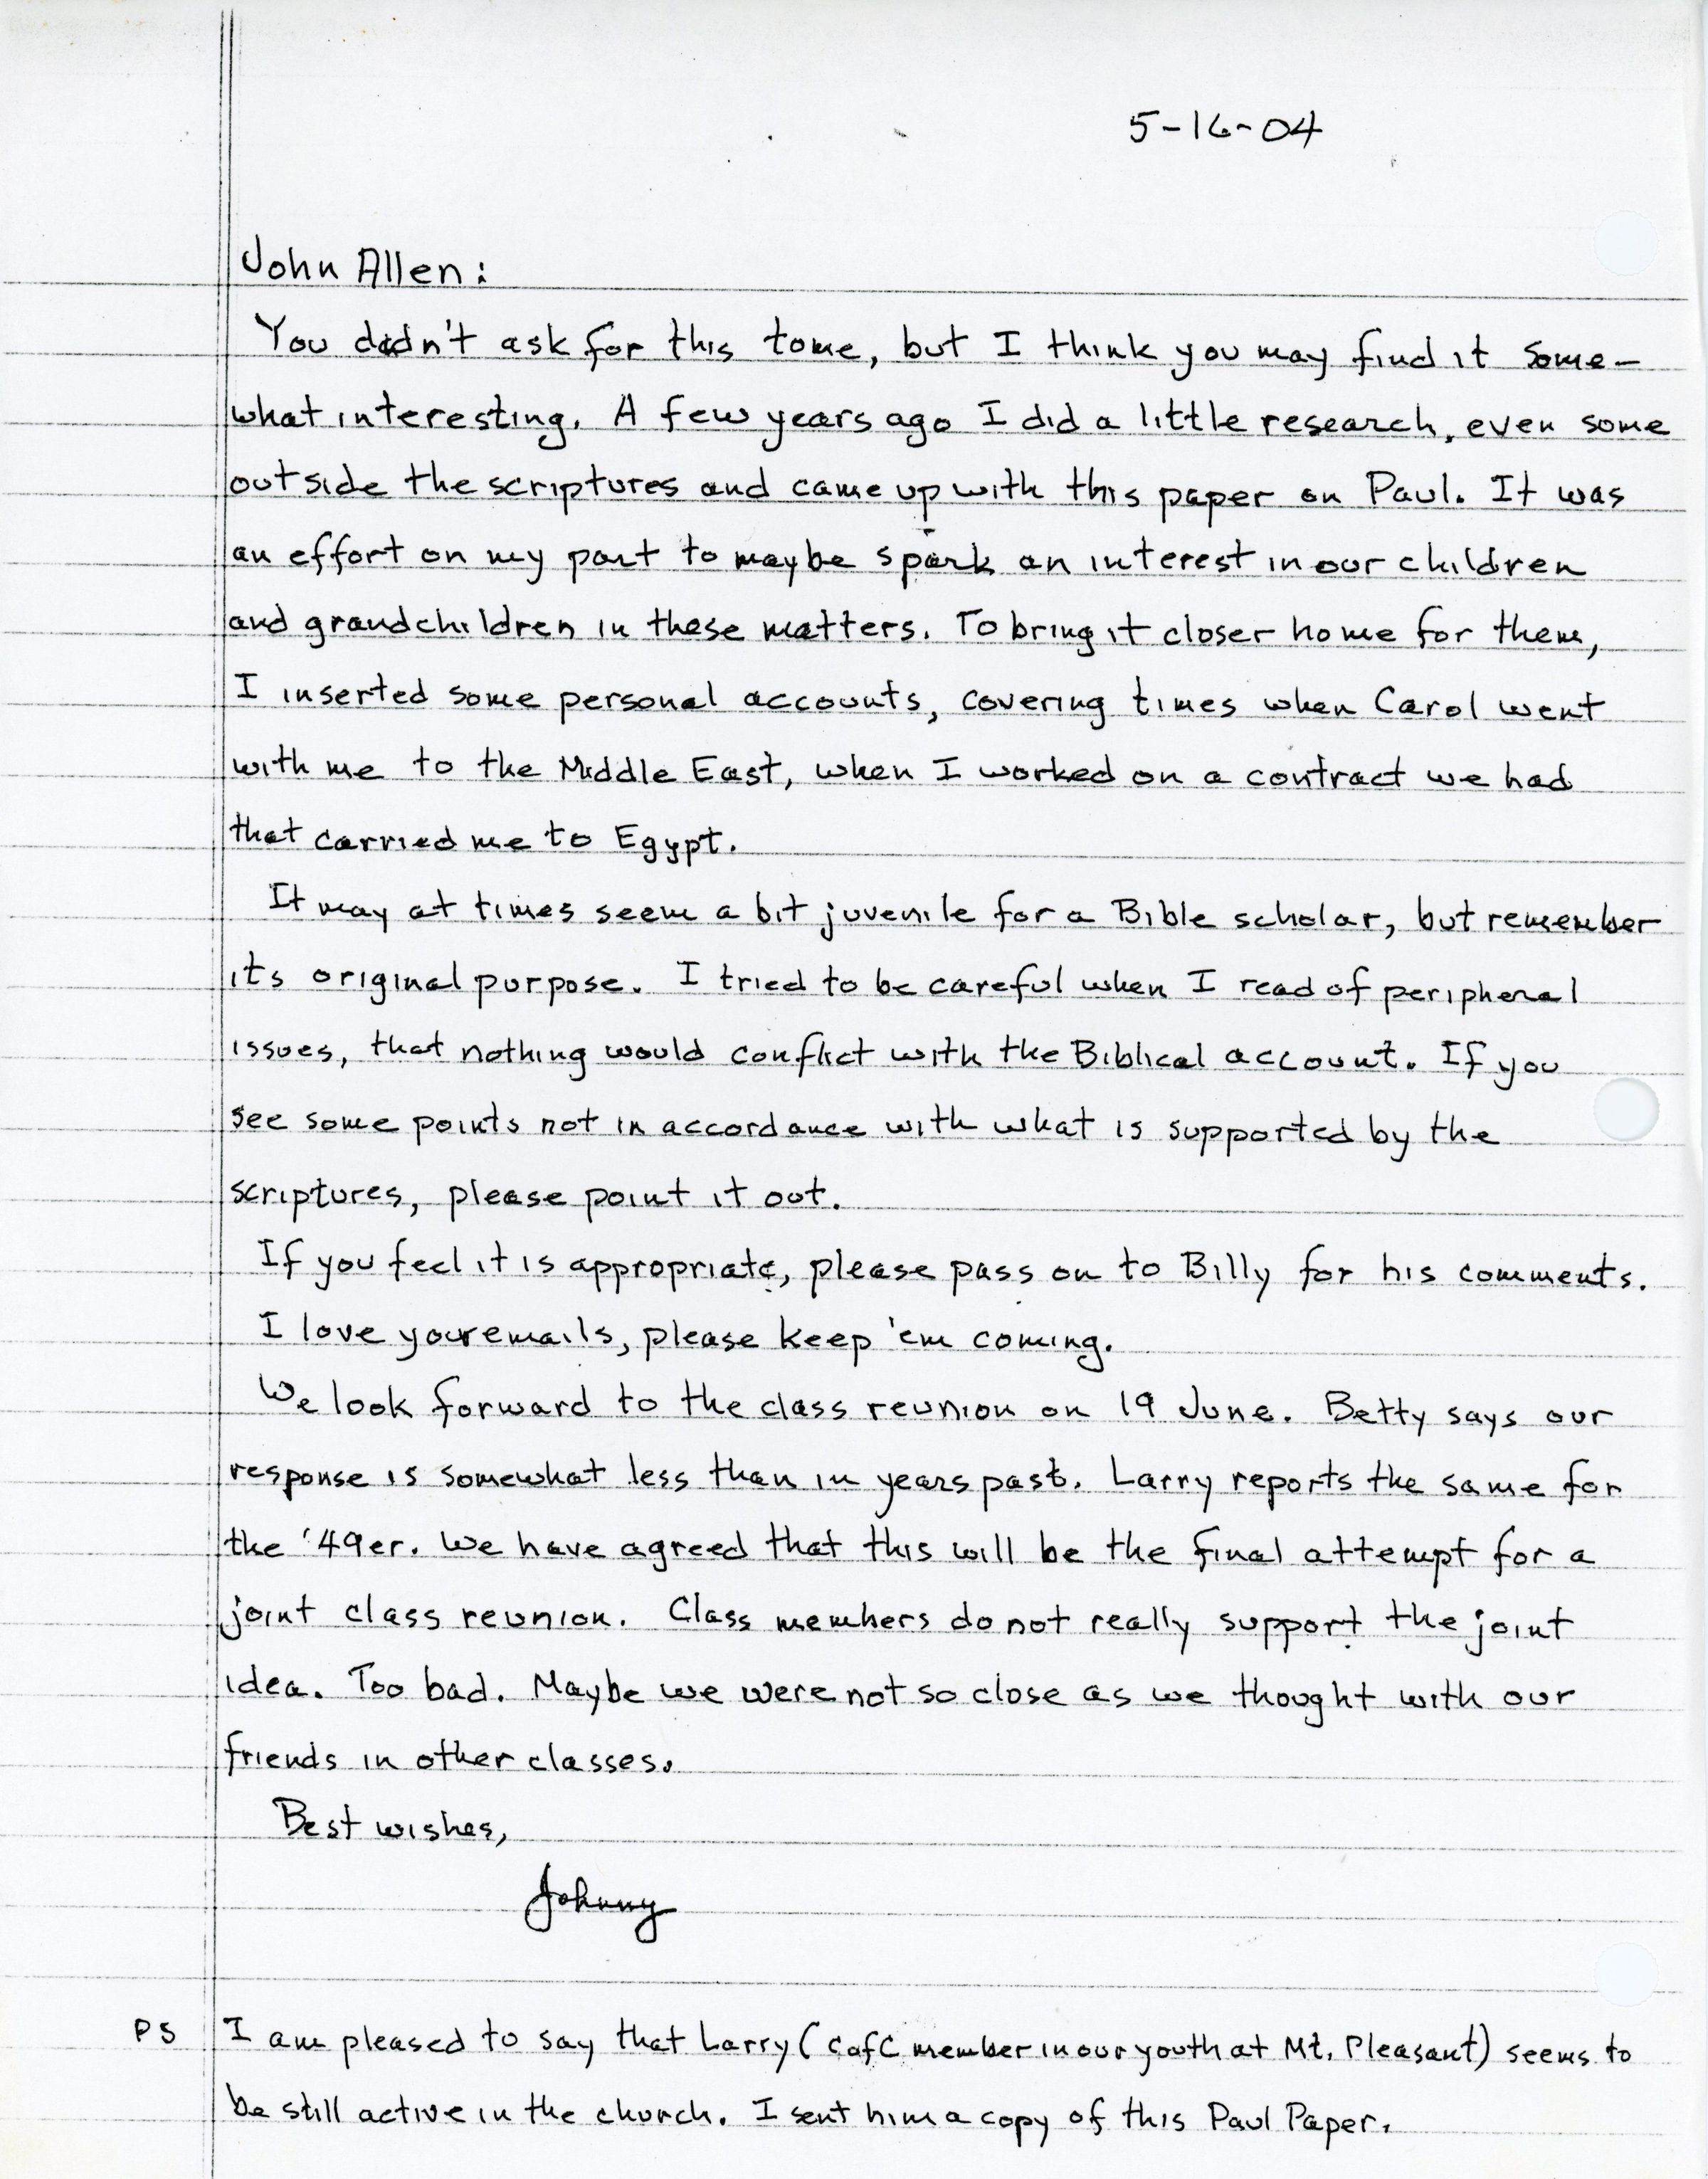 5-16-04
John Allen:
You didn't ask for this tome, but I think you may find it some-
what interesting. A few years ago I did a little research, even some
outside the scriptures and came up with this paper on Paul. It was
an effort on my part to maybe spark an interest in our children
and grandchildren in these matters. To bring it closer home for them,
I inserted some personal accounts, covering times when Carol went
with me to the Middle East, when I worked on a contract we had
that carried me to Egypt.
It may at times seem a bit juvenile for a Bible scholar, but remember
its original purpose. I tried to be careful when I read of peripheral
issues, that nothing would conflict with the Biblical account. If you
see some points not in accordance with what is supported by the
scriptures, please point it out.
If you feel it is appropriate, please pass on to Billy for his comments.
I love your emails, please keep 'em coming.
We look forward to the class reunion on 19 June. Betty says our
response is somewhat less than in years past. Larry reports the same for
the '49er. We have agreed that this will be the final attempt for a
joint class reunion. Class members do not really support the joint
idea. Too bad. Maybe we were not so close as we thought with our
friends in other classes.
Best wishes,
Johnny
PS I am pleased to say that Larry (CofC member in our youth at Mt. Pleasant) seems to
be still active in the church. I sent him a copy of this Paul Paper.